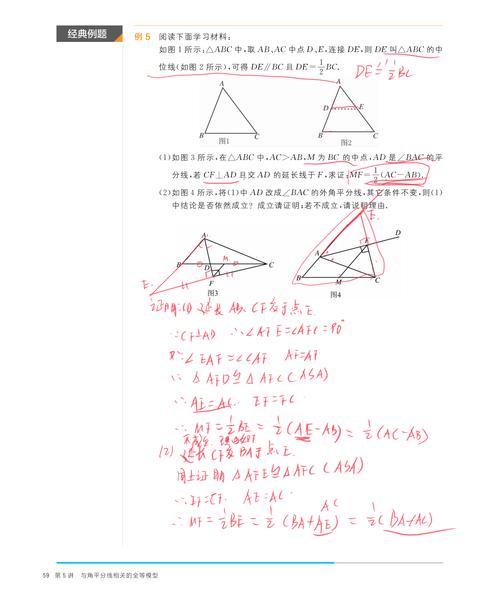 经典例题
例 5 阅读下面学习材料:
如图 1 所示,△ABC 中,取 AB、AC 中点 D、E,连接 DE,则 DE 叫△ABC 的中
位线(如图 2 所示),可得 DE∥BC 且 DE=1/2BC.
DE∥=1/2BC
A
B
C
图1
A
D
E
B
C
图2
(1)如图 3 所示,在△ABC 中,AC>AB,M 为 BC 的中点,AD 是∠BAC 的平
分线,若 CF⊥AD 且交 AD 的延长线于 F,求证:MF=1/2(AC-AB).
(2)如图 4 所示,将(1)中 AD 改成∠BAC 的外角平分线,其它条件不变,则(1)
中结论是否依然成立?成立请证明;若不成立,请说明理由.
A
B
D
M
C
F
E
图3
E
D
A
F
B
M
C
图4
证明:(1) 延长 AB、CF交于点E
∵CF⊥AD ∴∠AFE=∠AFC=90°
又∵∠EAF=∠CAF AF=AF
∴△AFD≌△AFC(ASA)
∴AE=AC, EF=FC
∴MF=1/2BE=1/2(AE-AB)=1/2(AC-AB)
(2) 延长CF交BA于点E
同上证明 △AFE≌△AFC(ASA)
∴EF=CF, AE=AC
∴MF=1/2BE=1/2(BA+AE)=1/2(BA+AC)
AC
59 第 5 讲 与角平分线相关的全等模型